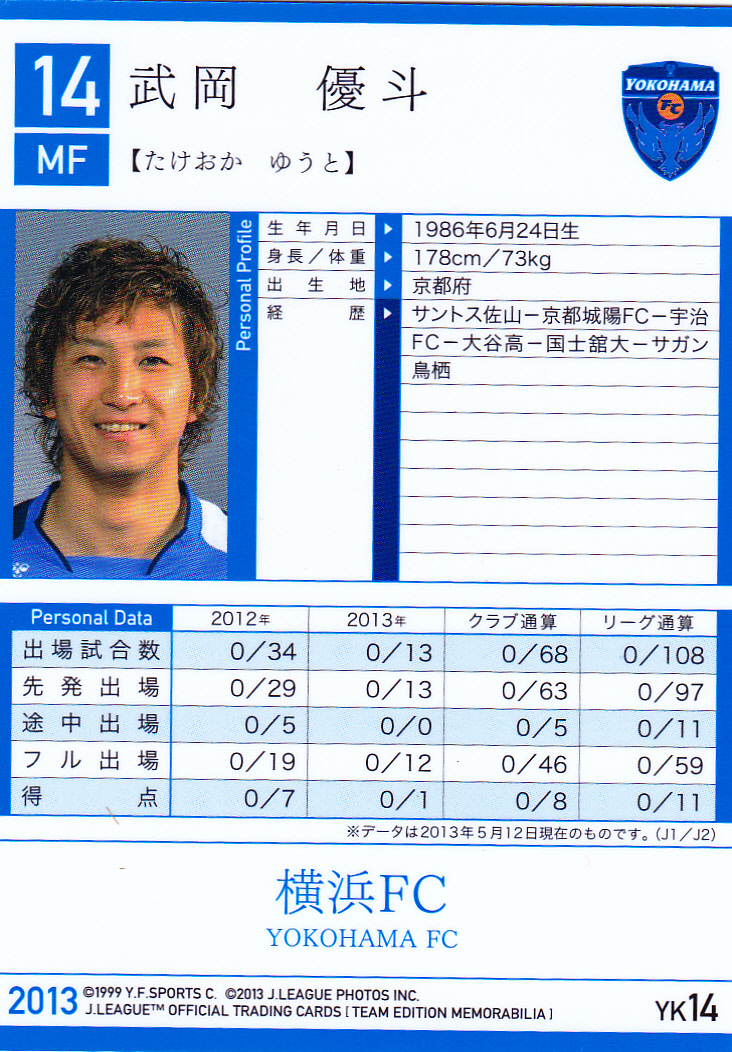 14
MF
武岡 優斗
【たけおか ゆうと】
YOKOHAMA
FC
Personal Profile
生年月日 ▶ 1986年6月24日生
身長／体重 ▶ 178cm／73kg
出生地 ▶ 京都府
経歴 ▶ サントス佐山－京都城陽FC－宇治
FC－大谷高－国士舘大－サガン
鳥栖
Personal Data 2012年 2013年 クラブ通算 リーグ通算
出場試合数 0／34 0／13 0／68 0／108
先発出場 0／29 0／13 0／63 0／97
途中出場 0／5 0／0 0／5 0／11
フル出場 0／19 0／12 0／46 0／59
得点 0／7 0／1 0／8 0／11
※データは2013年5月12日現在のものです。（J1／J2）
横浜FC
YOKOHAMA FC
2013
©1999 Y.F.SPORTS C. ©2013 J.LEAGUE PHOTOS INC.
J.LEAGUE™ OFFICIAL TRADING CARDS [ TEAM EDITION MEMORABILIA ]
YK14